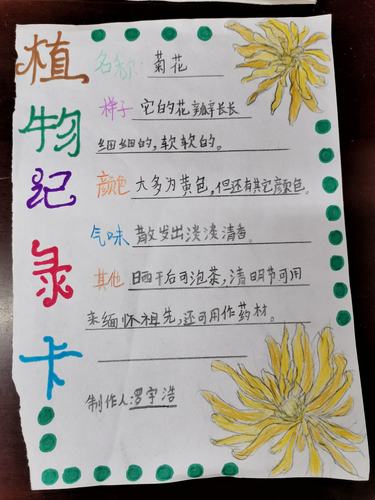 植物纪录卡
名称：菊花
样子 它的花瓣长长
细细的，软软的。
颜色 大多为黄色，但还有其它颜色。
气味 散发出淡淡清香。
其他 晒干后可泡茶，清明节可用
来缅怀祖先，还可用作药材。
制作人：罗宇浩